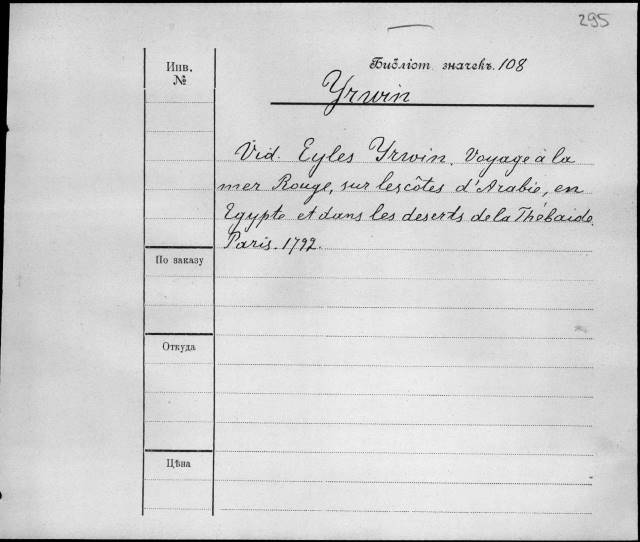 295
Инв.
№
Библіот. значекъ. 108
Yrwin
Vid. Eyles Yrwin. Voyage à la
mer Rouge, sur les côtes d'Arabie, en
Egypte et dans les deserts de la Thébaide.
Paris. 1792.
По заказу
Откуда
Цѣна